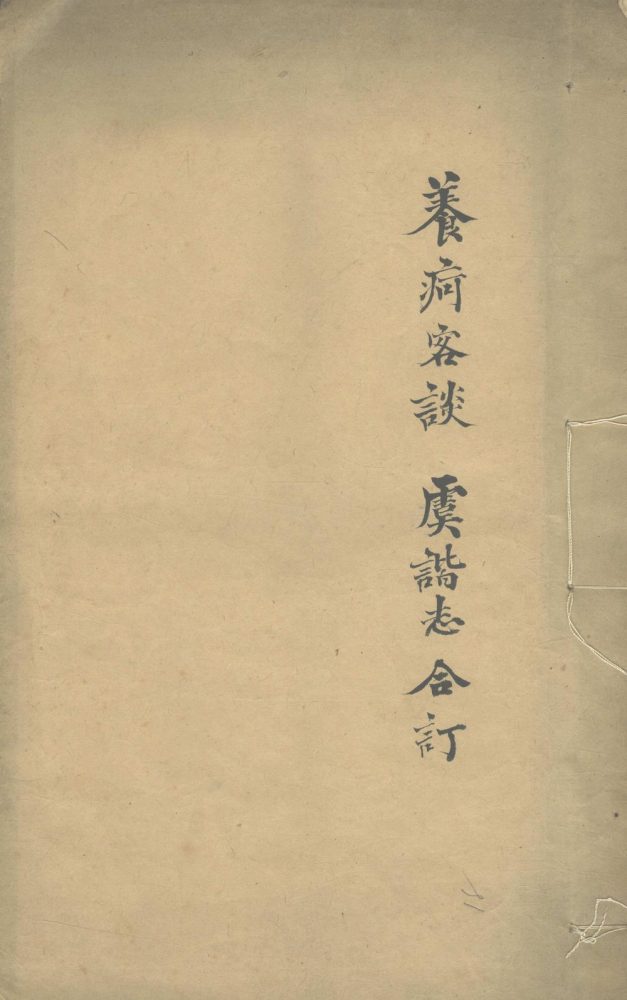 養疴客談 虞諧志 合訂